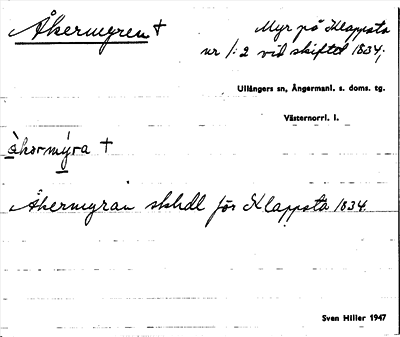 Åkermyren +
Myr på Klappsta
nr 1:2 vid skiftet 1834;
Ullångers sn, Ångermanl. s. doms. tg.
Västernorrl. l.
åkermýra +
Åkermyran skhdl för Klappsta 1834
Sven Hiller 1947